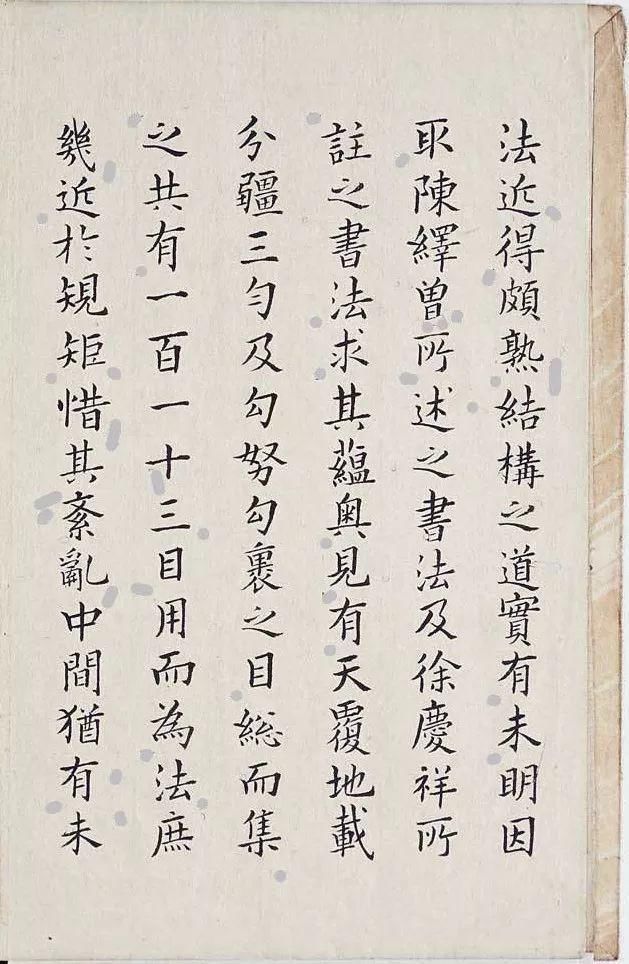 法近得頗熟結構之道實有未明因
取陳繹曾所述之書法及徐慶祥所
註之書法求其蘊奧見有天覆地載
分疆三勻及勾努勾裹之目総而集
之共有一百一十三目用而為法庶
幾近於規矩惜其紊亂中間猶有未